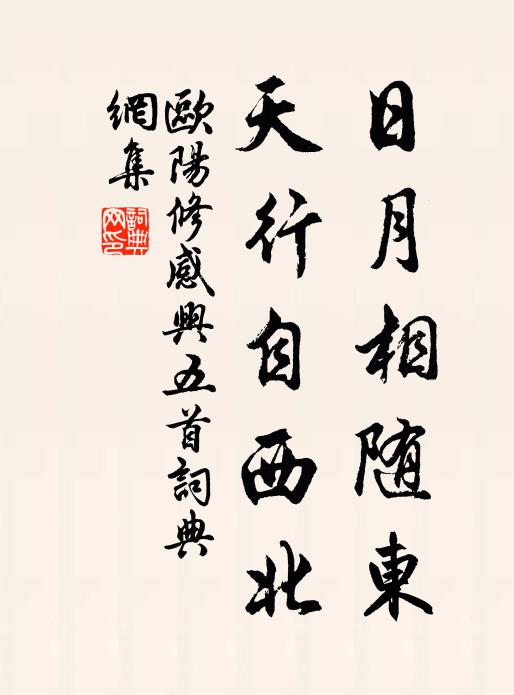 日月相随東
天行自西北
歐陽修感興五首詞典
網集
詞典
网印